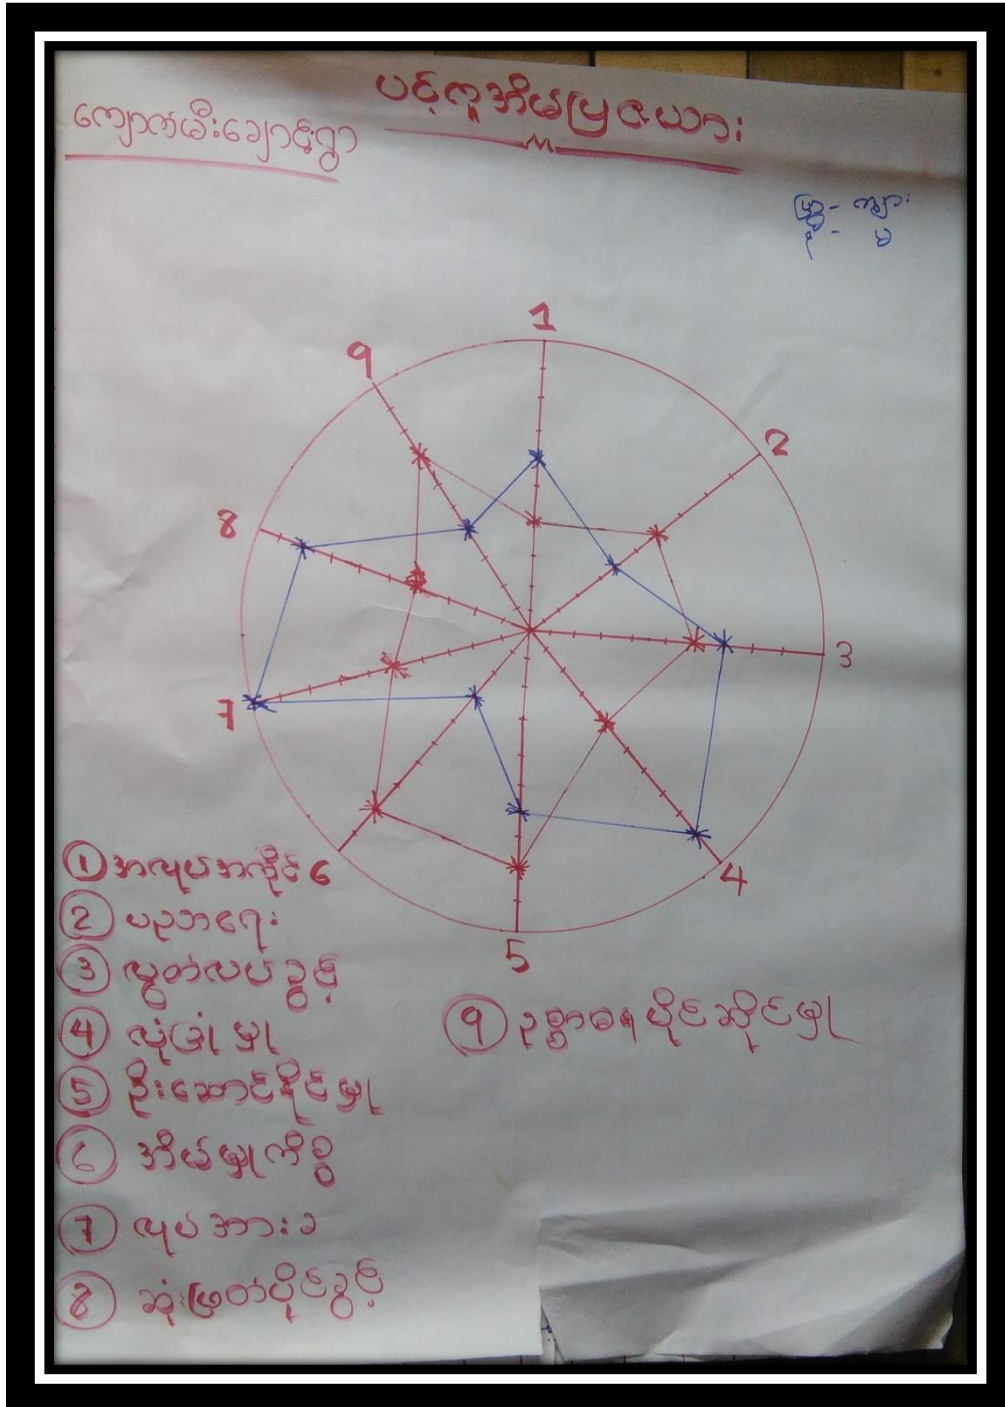 ပင့်ကူအိမ်မြဇယား
ကျောက်မီးချောင်းရွာ
ကျား
မ
1
2
3
4
5
6
7
8
9
① အလုပ်အကိုင်
② ပညာရေး
③ လွတ်လပ်ခွင့်
④ လုံခြုံမှု
⑤ ဦးဆောင်နိုင်မှု
⑥ အိမ်မှုကိစ္စ
⑦ လုပ်အားခ
⑧ ဆုံးဖြတ်ပိုင်ခွင့်
⑨ ဥစ္စာဓနပိုင်ဆိုင်မှု